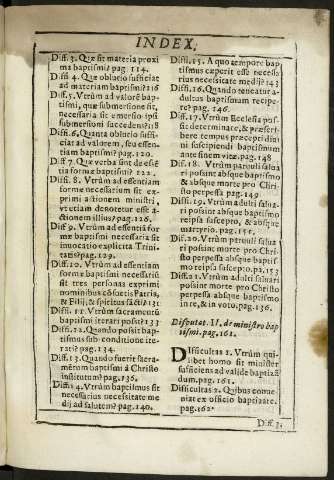 INDEX.
Diff. 3. Quæ sit materia proxi
ma baptismi? pag. 114.
Diffi 4. Quæ oblutio sufficiat
ad materiam baptismi? 116
Diff. 5. Vtrùm ad valorē bap-
tismi, quæ submersione sit,
necessaria sit emersio ipsi
submersioni succedens? 118
Diffi. 6. Quanta oblutio suffi-
ciat ad valorem, seu essen-
tiam baptismi? pag. 120.
Diff 7. Quæ verba sint de essē
tia formæ baptismi? 122.
Diffi. 8. Vtrùm ad essentiam
formæ necessarium sit ex-
primi actionem ministri,
vt etiam denotetur esse a-
ctionem illius? pag. 126.
Diff 9. Vtrùm ad essentiā for
mæ baptismi necessaria sit
inuocatio explicita Trini-
tatis? pag. 129.
Diff. 10. Vtrùm ad essentiam
formæ baptismi necessariū
sit tres personas exprimi
nominibus cōsuetis Patris,
& Filij, & Spiritus sācti? 131
Diffi. 11. Vtrùm sacramentū
baptismi iterari possit? 133
Diffi. 12. Quando possit bap-
tismus sub conditione ite-
rari? pag. 134.
Diff. 13. Quando fuerit sacra-
mētum baptismi à Christo
institutum? pag. 136.
Diffi 14. Vtrùm baptismus sit
necessarius necessitate me
dij ad salutem? pag. 140.
Diff. 15. A quo tempore bap
tismus cœperit esse necessa
rius necessitate medij? 143
Diffi. 16. Quando teneātur a-
dultus baptismum recipe-
re? pag. 146.
Diff. 17. Vtrùm Ecclesia pos-
sit determinate, & præscri-
bere tempus præcepti diui
ni suscipiendi baptismum
ante finem vitæ. pag. 148
Diff. 18. Vtrùm paruuli salua
ri possint absque baptismo
& absque morte pro Chri
sto perpessa. pag. 149
Diffi. 19. Vtrùm adulti salua-
ri possint absque baptismo
reipsa suscepto, & absque
martyrio. pag. 151.
Diff. 20. Vtrùm paruuli salua
ri possint morte pro Chri-
sto perpessa absque baptis-
mo reipsa suscepto. pa. 153
Diff. 21. Vtrùm adulti saluari
possint morte pro Christo
perpessa absque baptismo
in re, & in voto. pag. 156.
Disputat. II. de ministro bap
tismi. pag. 161.
Difficultas 1. Vtrùm qui-
libet homo sit minister
sufficiens ad validè baptizā
dum. pag. 161.
Difficultas 2. Quibus conue-
niat ex officio baptizare.
pag. 162.
Diff. 3.